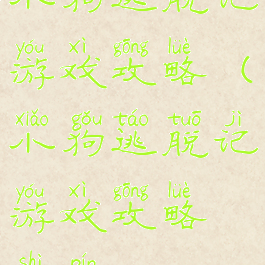 小狗逃脱记
yóu xì gōng lüè
游戏攻略（
xiǎo gǒu táo tuō jì
小狗逃脱记
yóu xì gōng lüè
游戏攻略
shì pín